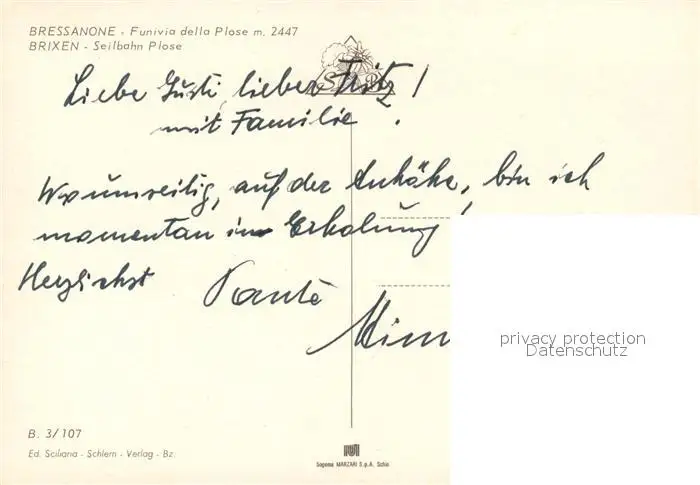 BRESSANONE - Funivia della Plose m. 2447
BRIXEN - Seilbahn Plose
Liebe Gusti, lieber Fritz!
mit Familie!
umseitig, auf der Anhöhe, bin ich
momentan in Erholung!
Herzlichst Tante
privacy protection
Datenschutz
B. 3/107
Ed. Sciliana - Schlern - Verlag - Bz.
Sagoma MARZARI S.p.A. Schio